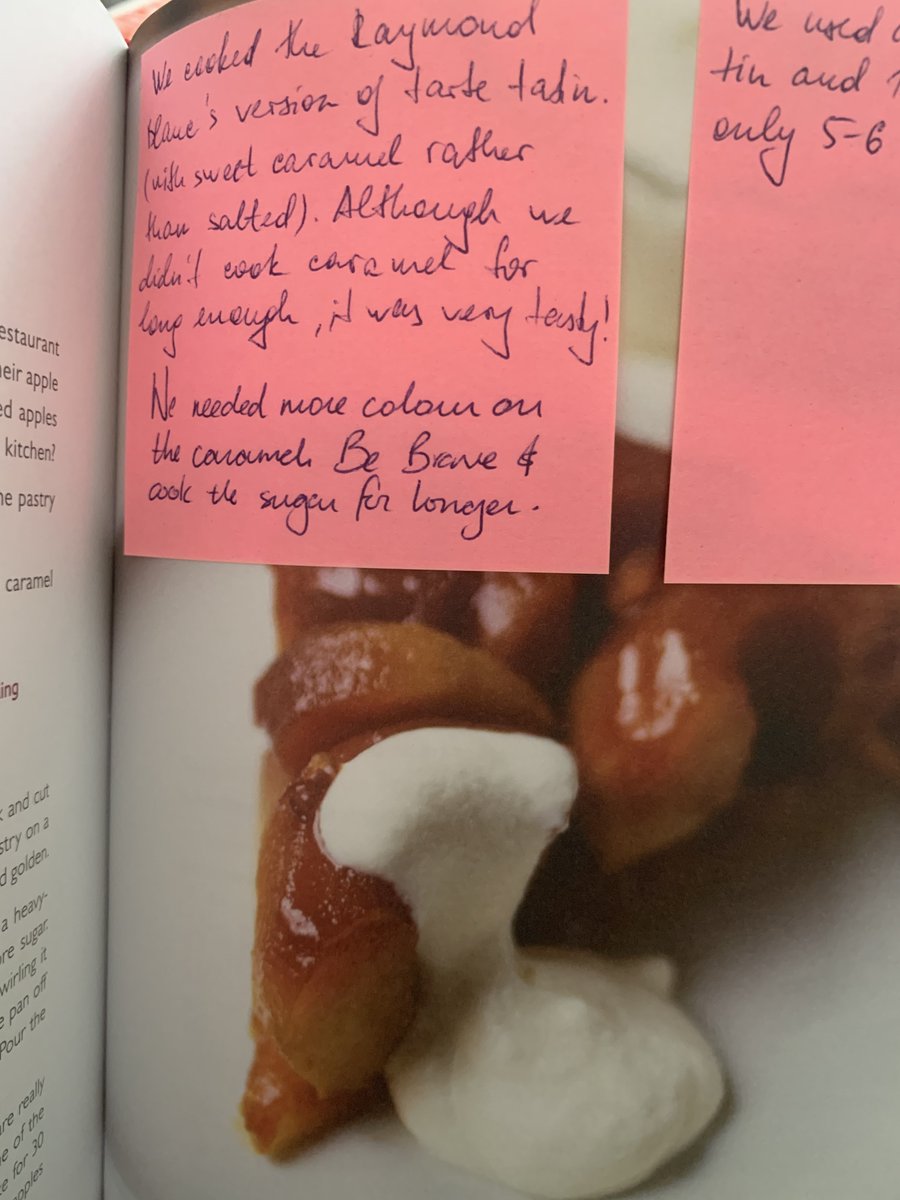 estaurant
heir apple
ed apples
kitchen?
he pastry
caramel
ing
k and cut
stry on a
d golden.
a heavy-
ore sugar.
wirling it
e pan off
Pour the
are really
e of the
ce for 30
apples
We cooked the Raymond
Blanc's version of tarte tatin.
(with sweet caramel rather
than salted). Although we
didn't cook caramel for
long enough, it was very tasty!
We needed more colour on
the caramel. Be Brave &
cook the sugar for longer.
We used
tin and
only 5-6